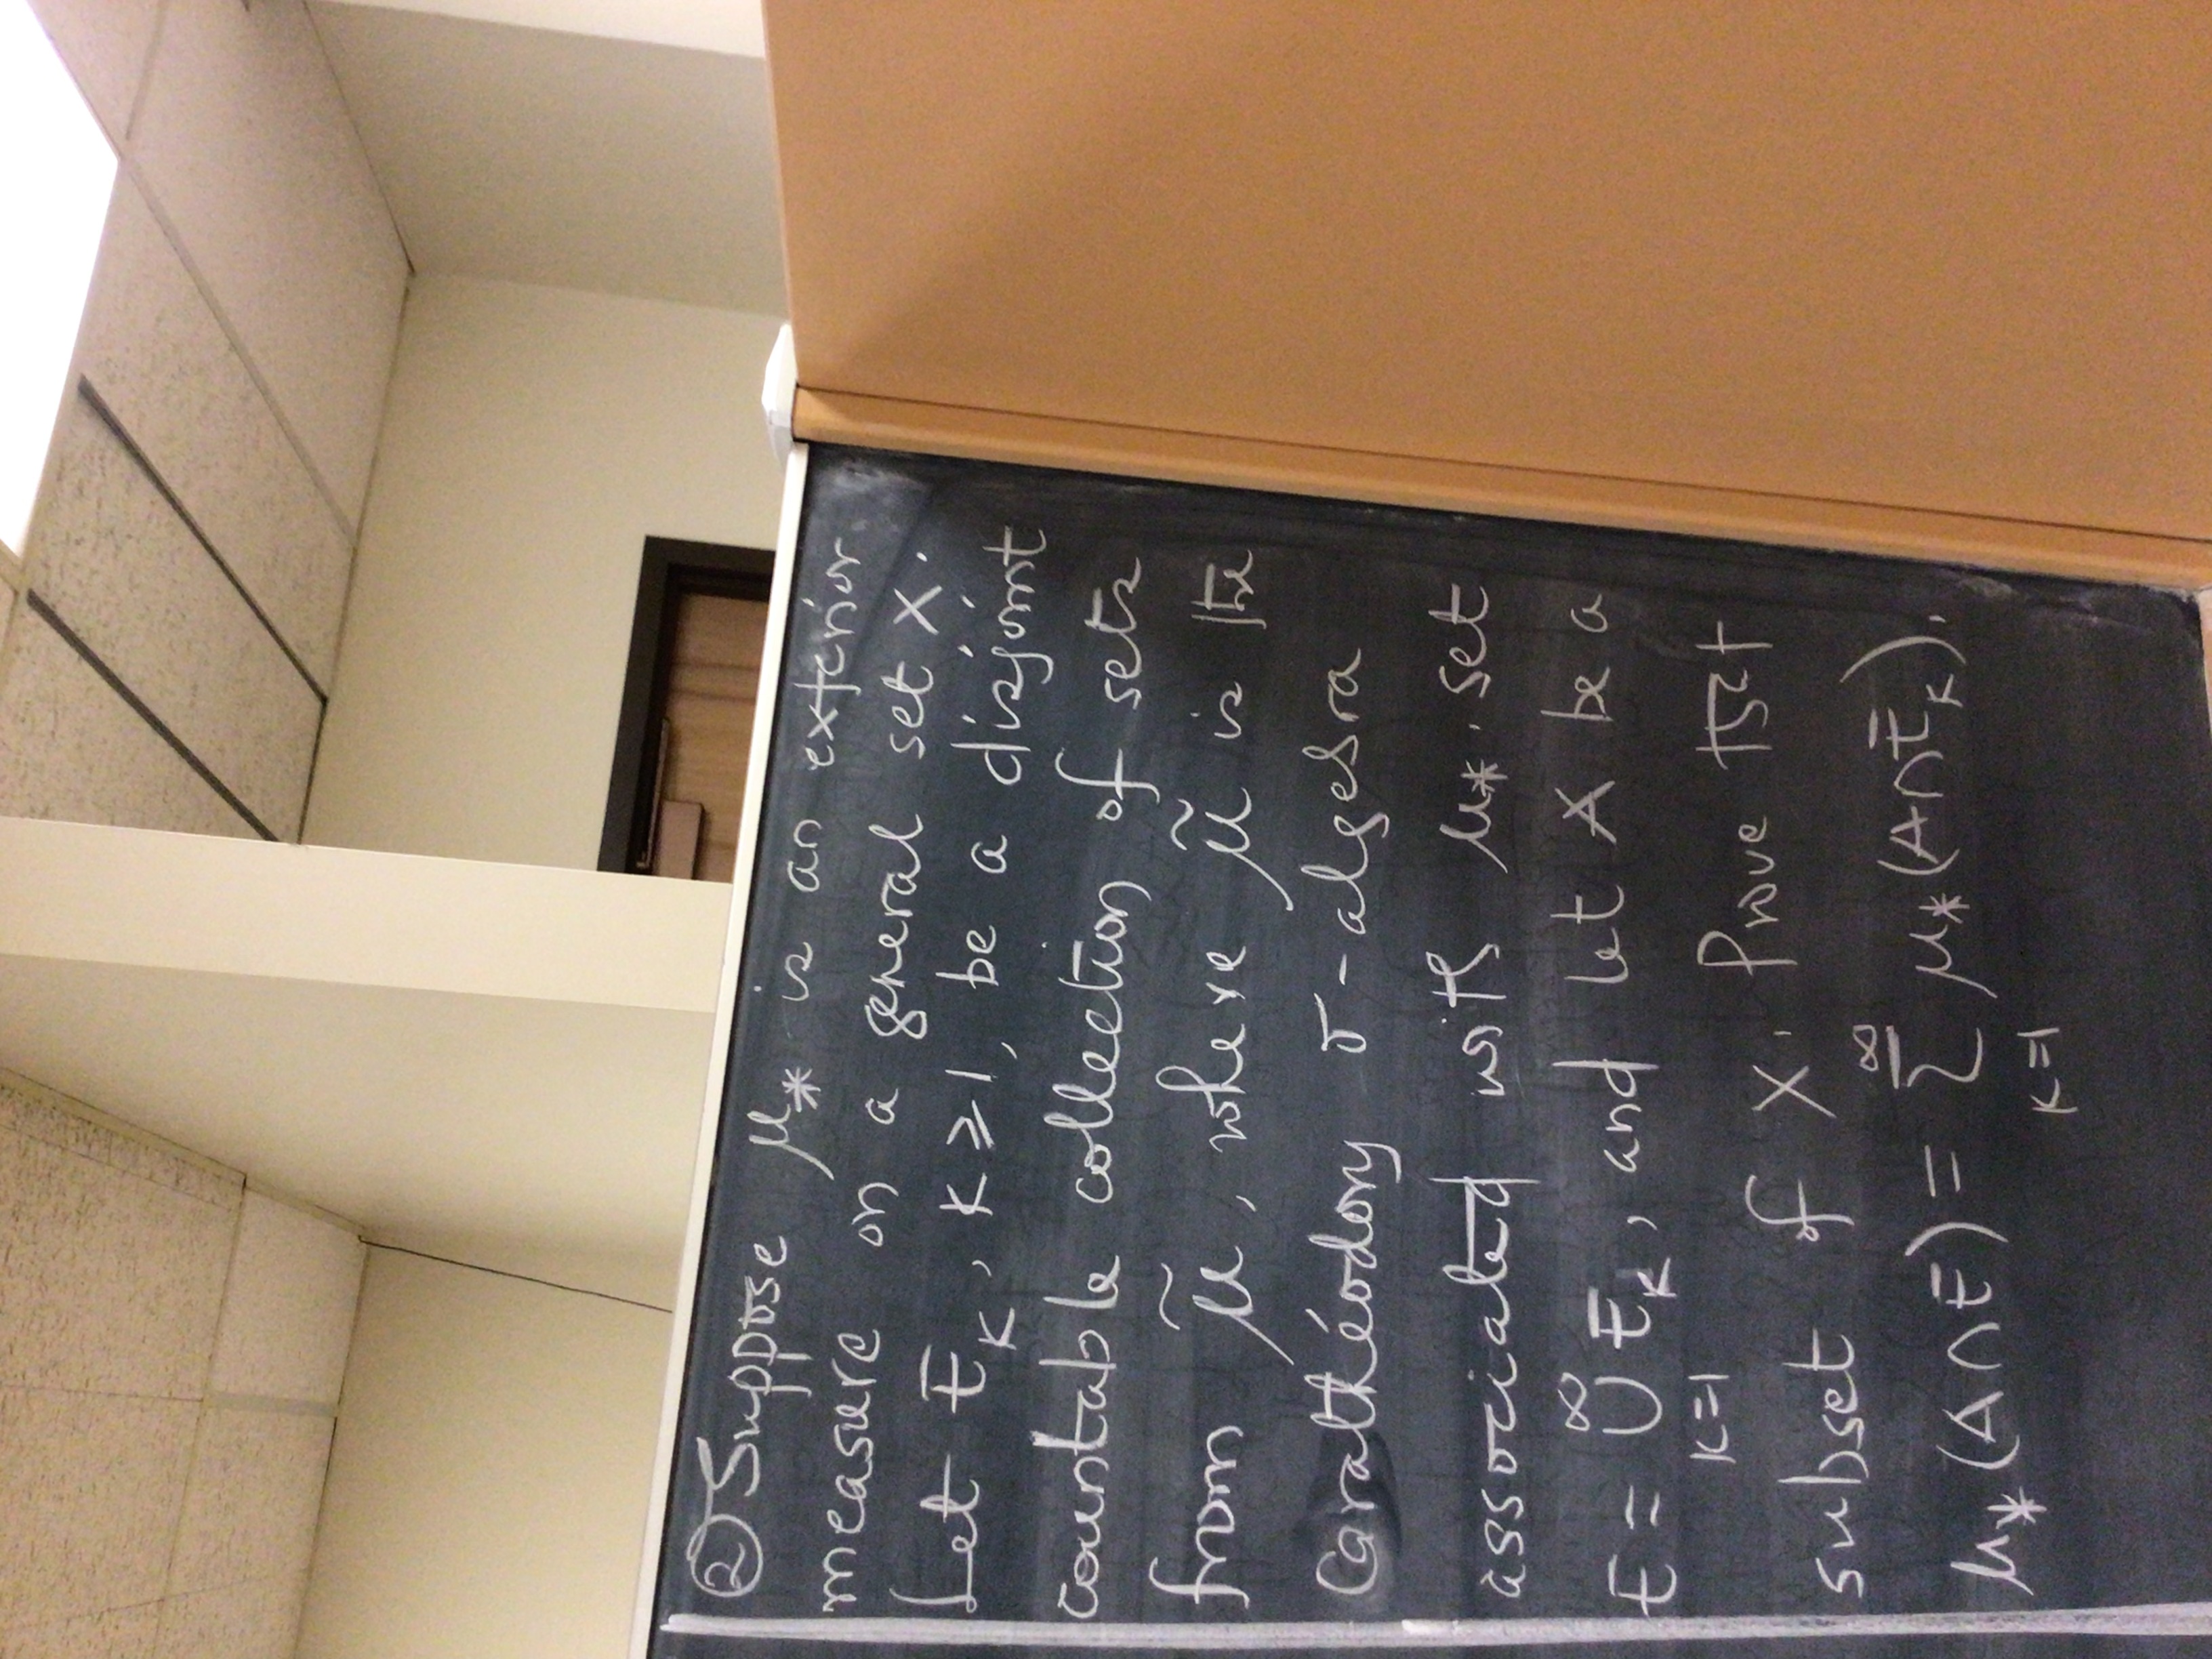 ② Suppose μ_* is an exterior
measure on a general set X.
Let E_K, K ≥ 1, be a disjoint
countable collection of sets
from μ̃, where μ̃ is the
Carathéodory σ-algebra
associated with μ_*. Set
E = ∞∪_{K=1} E_K, and let A be a
subset of X. Prove that
μ_*(A∩E) = ∞Σ_{K=1} μ_*(A∩E_K).